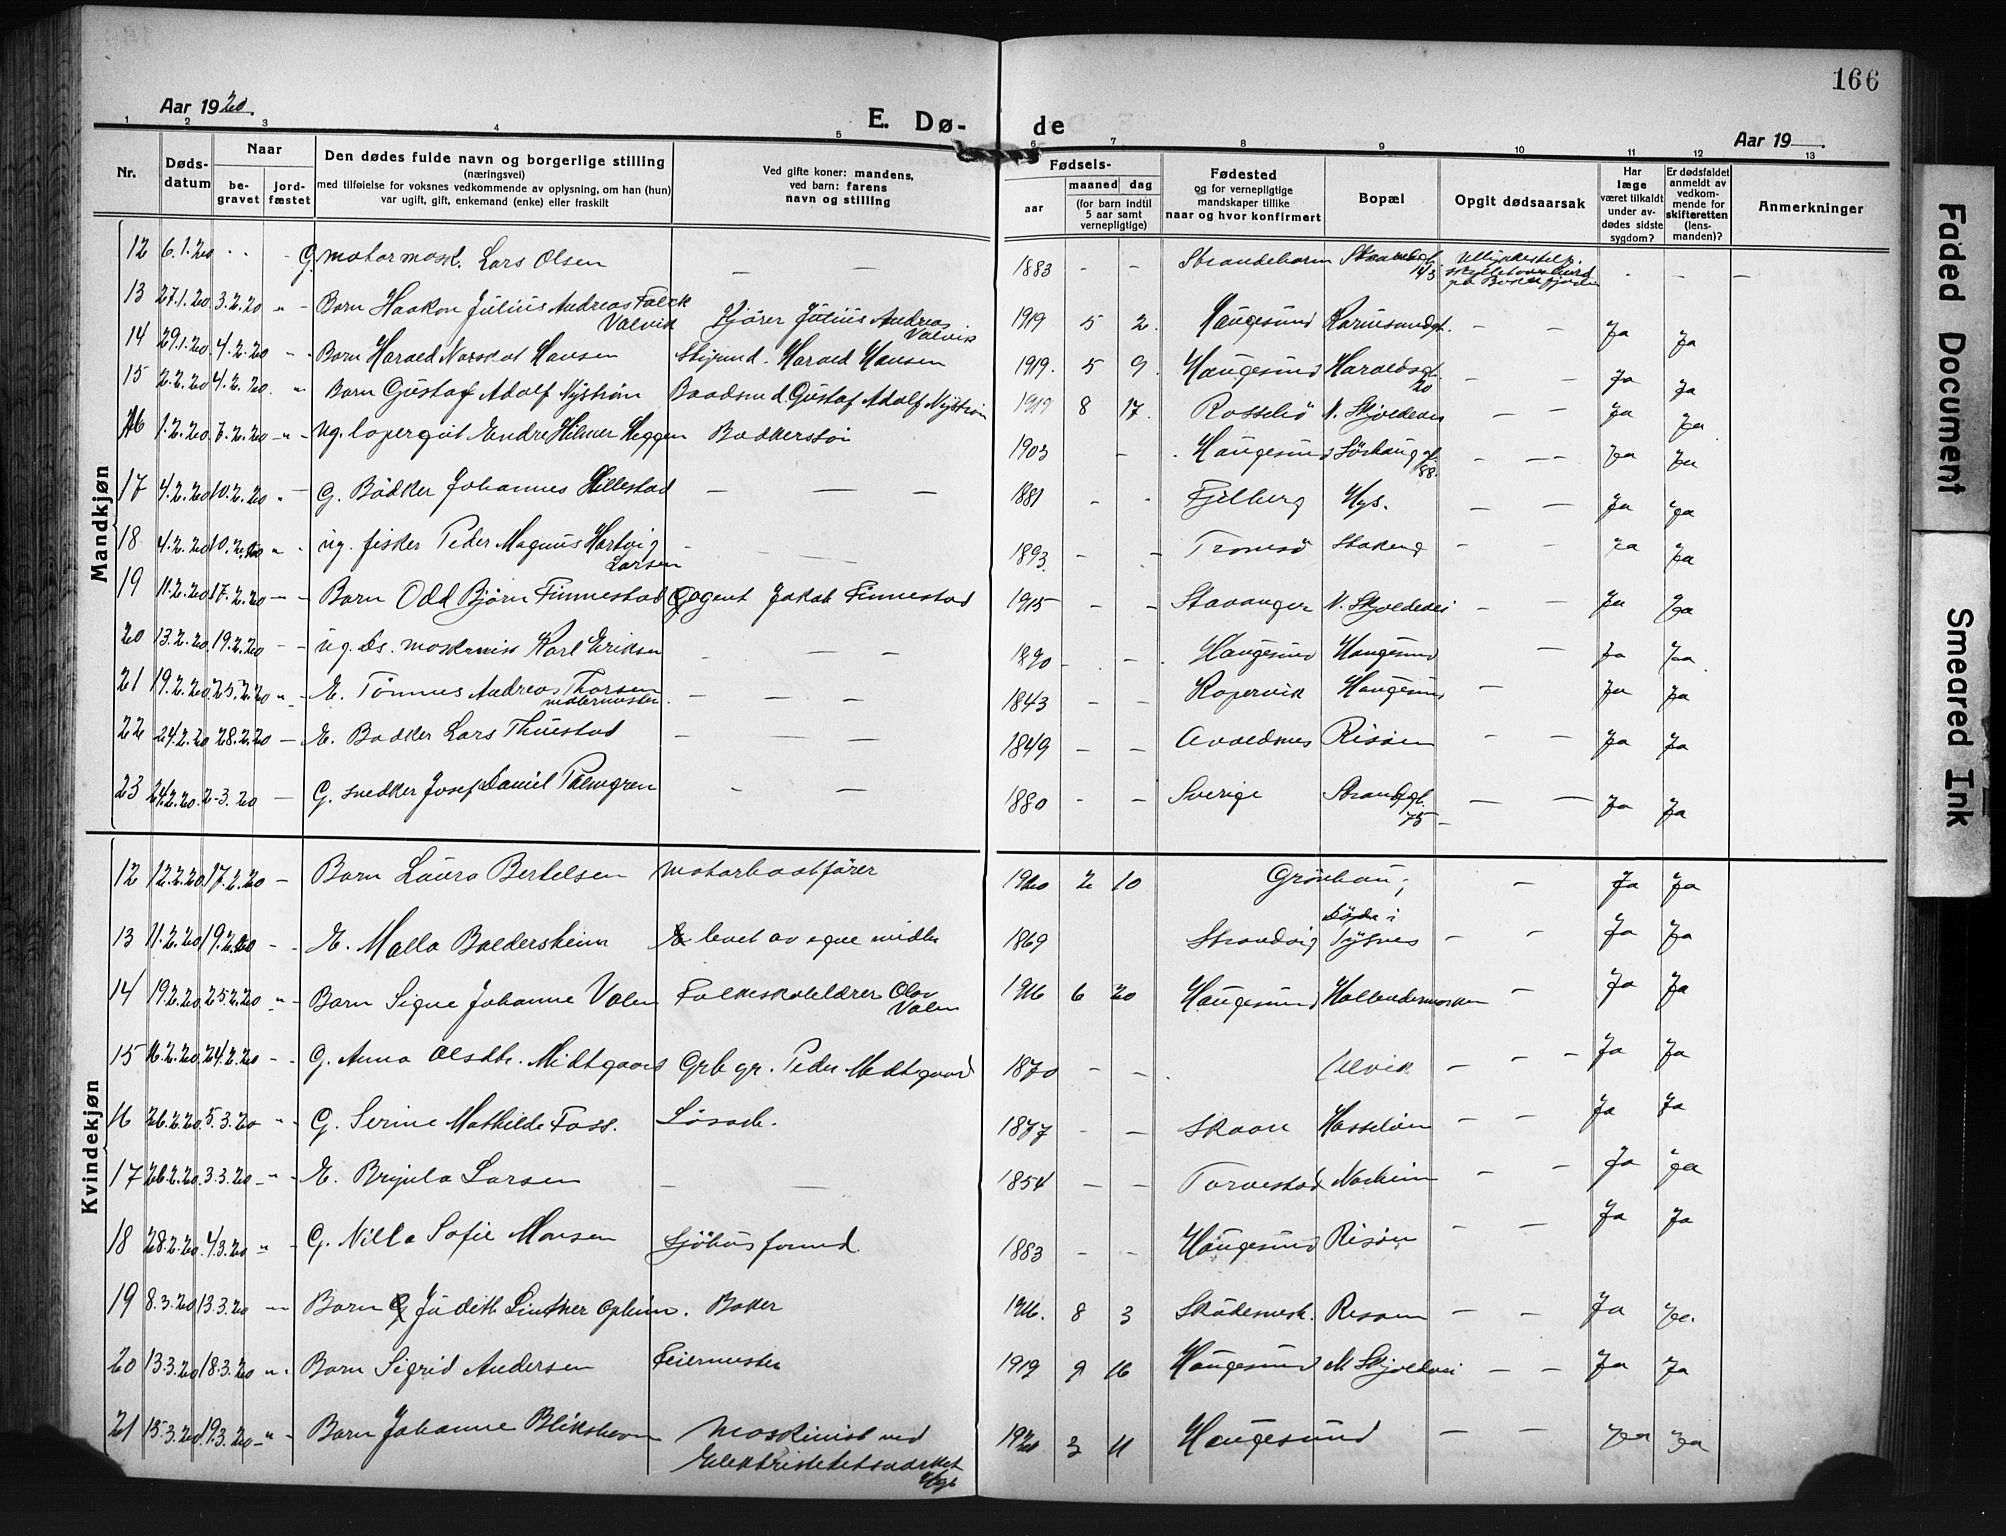 166
Aar 1920.
E. Dø-
de
Aar 19
1 2 3 4 5 6 7 8 9 10 11 12 13
Nr.
Døds-
datum
Naar
be-
gravet
jord-
fæstet
Den dødes fulde navn og borgerlige stilling
(næringsvei)
med tilføielse for voksnes vedkommende av oplysning, om han (hun)
var ugift, gift, enkemand (enke) eller fraskilt
Ved gifte koner: mandens,
ved barn: farens
navn og stilling
Fødsels-
aar
maaned dag
(for barn indtil
5 aar samt
vernepligtige)
Fødested
og for vernepligtige
mandskaper tillike
naar og hvor konfirmert
Bopæl
Opgit dødsaarsak
Har
læge
været tilkaldt
under av-
dødes sidste
sygdom?
Er dødsfaldet
anmeldt av
vedkom-
mende for
skifteretten
(lens-
manden)?
Anmerkninger
Mandkjøn
12 6.1.20 G. motormask. Lars Olsen — — 1883 - - Strandebarm Strandgt. 143 — —
13 27.1.20 3.2.20 " - Barn Haakon Julius Andreas Falck Valvik Julius Andreas Valvik 1919 5 2. Haugesund Karmsundgt. — — Ja Ja
14 29.1.20 4.2.20 " - Barn Harald Norskot Hansen Harald Hansen 1919. 5 9. Haugesund Haraldsgt. 20 — — Ja Ja
15 2.2.20 4.2.20. " Barn Gustaf Adolf Nystrøm Baadsmd. Gustaf Adolf Nystrøm 1919 8 17. N. Skjoldevei — — Ja Ja
16 1.2.20 7.2.20 -"- Ug. Endre Hilmer Heggen 1903 - Haugesund Sørhauggt. 88. — — Ja Ja
17 4.2.20 10.2.20 " - G. Bødker Johannes Hillestad — — — 1881 - - Fjelberg — — Ja Ja
18 4.2.20 10.2.20 " - ug. fisker Peder Magnus Hartvig Larsen - — 1893. - - Tromsø — — Ja Ja
19 11.2.20 17.2.20 - - Barn Odd Bjørn Finnestad agent Jakob Finnestad 1915 - - Stavanger N. Skjoldevei — — Ja Ja
20 13.2.20 19.2.20 - - ug. Ds. maskinist Karl Eriksen — — — 1890 - - Haugesund Haugesund — Ja Ja
21 19.2.20. 25.2.20 " - E. Tønnes Andreas Thorsen — — — 1843 - - Kopervik Haugesund — Ja Ja
22 24.2.20 28.2.20 — E. Bødker Lars Thuestad — — — 1849 - - Avaldsnes Risøen — — Ja Ja
23 24.2.20. 2-3.20 — G. snedker Josef Daniel Palmgren — — 1880 - - Sverige Strandgt. 75 — — — Ja Ja
Kvindekjøn
12 12.2.20 17.2.20 — Barn Laura Bertelsen motorbaatfører 1920 2 10 Grønhaug — Ja Ja
13 11.2.20 19.2.20 - - E. Malla Baldersheim levet av egne midler 1869 Strandvig Døde i Tysnes — — Ja Ja
14 19.2.20. 25.2.20 " - Barn Signe Johanne Valen Folkeskolelærer Olav Valen 1916 6 20 Haugesund — Ja Ja
15 16.2.20. 24.2.20 - - G. Anna Olsdtr. Midtgaard Grb gr. Peder Midtgaard 1870 - - Ulvik — — — Ja Ja
16 26.2.20. 5.3.20 " - G. Serine Mathilde Foss. Løsarb. 1877 - - Skaare Hasseløen — — Ja Ja
17 26.2.20. 3.3.20 - " - E. Larsen — — 1854 - - Torvestad Norheim — — Ja Ja
18 28.2.20. 4.3.20 " - G. Nilla Sofie Monsen Sjøhusformd. 1883 - - Haugesund Risøen — — Ja Ja
19 8.3.20 13.3.20 - Barn Judith Opheim. Baker 1916. 8 3 Risøen — — Ja Ja
20 13.3.20 18.3.20 " Barn Sigrid Andersen Feiermester 1919 9 16 Haugesund N. Skjoldvei — — Ja Ja
21 15.3.20 19.3.20 - " - Barn Johanne Blikshavn Maskinist ved Elektrisitetsverket Hgs 1920 3 11 Haugesund — — Ja Ja
Faded Document
Smeared Ink